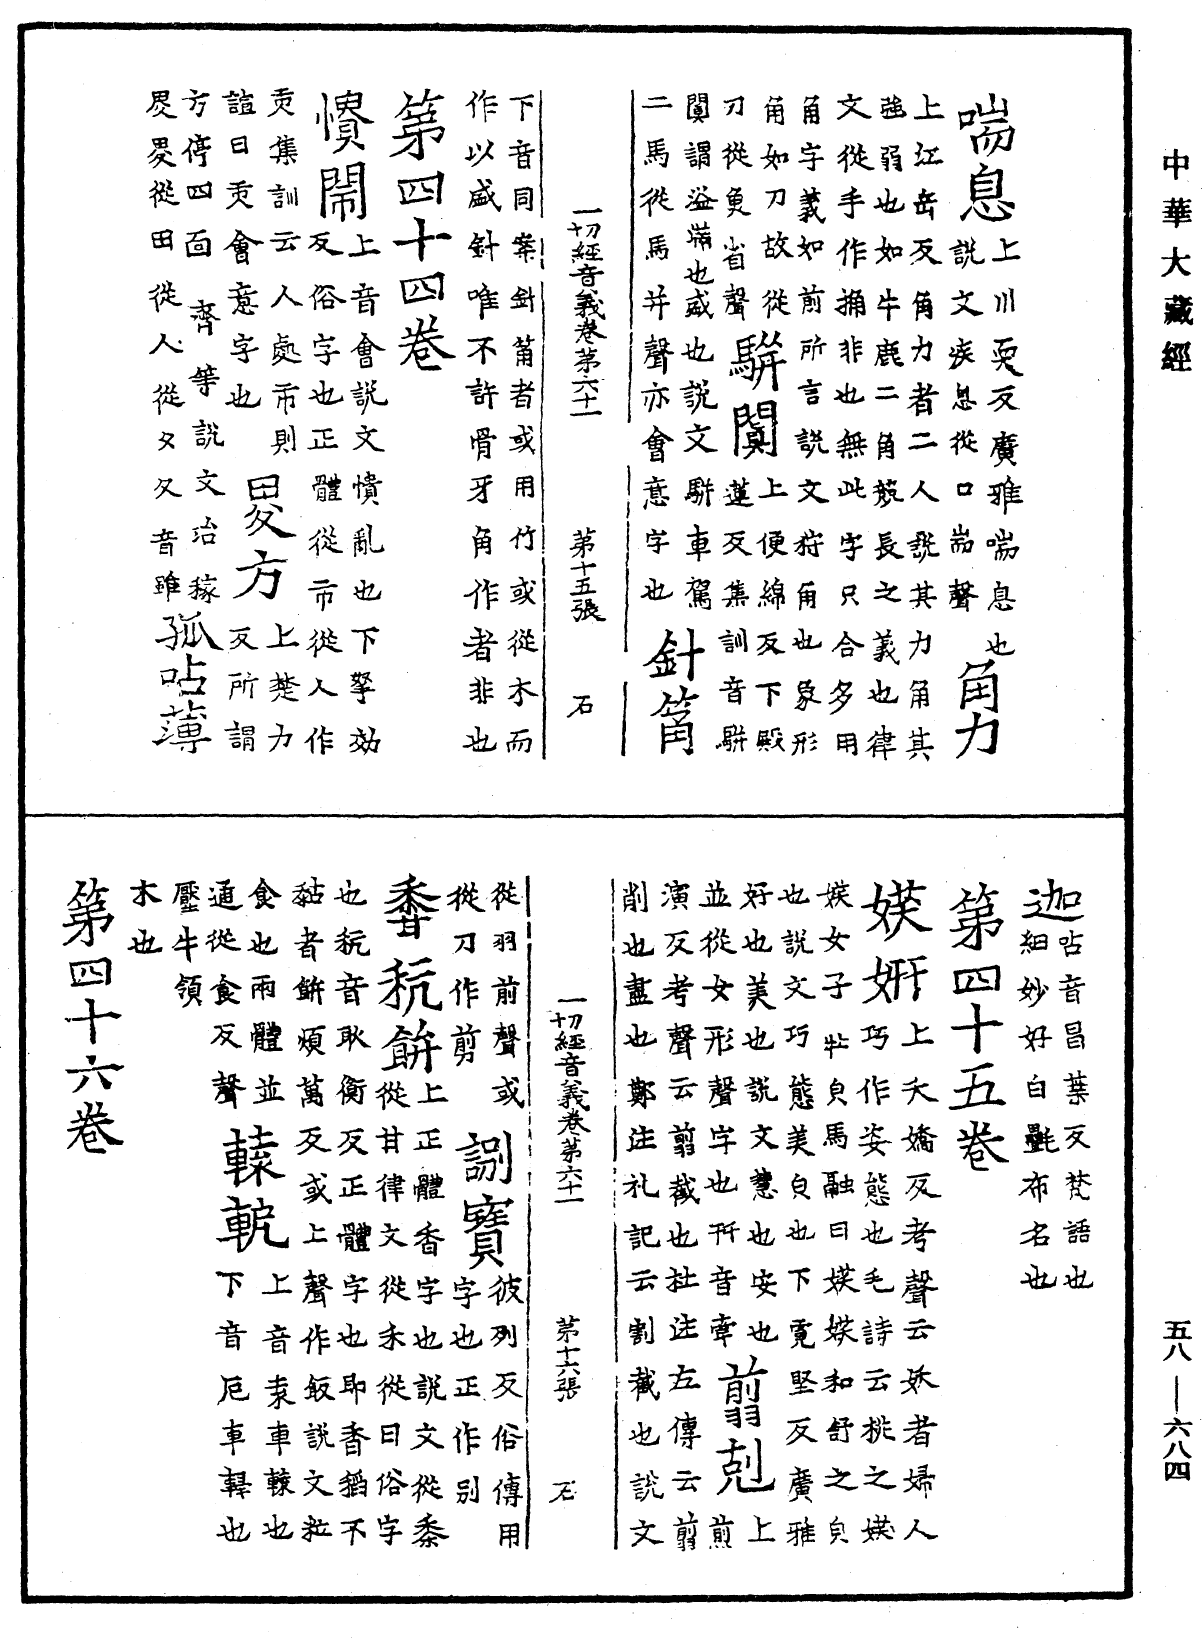 中華大藏經
喘息上川耎反廣雅喘息也
說文疾息從口耑聲角力
上江岳反角力者二人說其力角其
強弱也如牛鹿二角競長之義也律
文從手作捔非也無此字只合多用
角字義如前所言說文狩角也象形
角如刀故從
刀從魚省聲駢闐上便綿反下殿
蓮反集訓音駢
闐謂溢滿也盛也說文駢車駕
二馬從馬并聲亦會意字也針筩
一切經音義卷第六十一　第十五張　石
下音同案針筩者或用竹或從木而
作以盛針唯不許骨牙角作者非也
第四十四卷
憒鬧上音會說文憒亂也下拏効
反俗字也正體從市從人作
㚑集訓云人處市則
諠曰㚑會意字也畟方上楚力
反所謂
方停四面齊等說文治稼
畟畟從田從人從夂夂音雖孤呫薄
迦呫音昌葉反梵語也
細妙好白㲲布名也
第四十五卷
媄妍上夭嬌反考聲云妖者婦人
巧作姿態也毛詩云桃之媄
媄女子壯皃馬融曰媄媄和舒之皃
也說文巧態美皃也下霓堅反廣雅
好也美也說文慧也安也
並從女形聲字也幵音牽翦剋上
煎
演反考聲云翦截也杜注左傳云翦
削也盡也鄭注礼記云割截也說文
一切經音義卷第六十一　第十六張　石
從羽前聲或
從刀作剪捌寶彼列反俗傳用
字也正作別
黁秔餅上正體香字也說文從黍
從甘律文從禾從曰俗字
也秔音耿衡反正體字也即香稻不
黏者餅煩萬反或上聲作飯說文粒
食也兩體並
通從食反聲轅軶上音袁車轅也
下音厄車轅也
壓牛領
木也
第四十六卷
五八—六八四